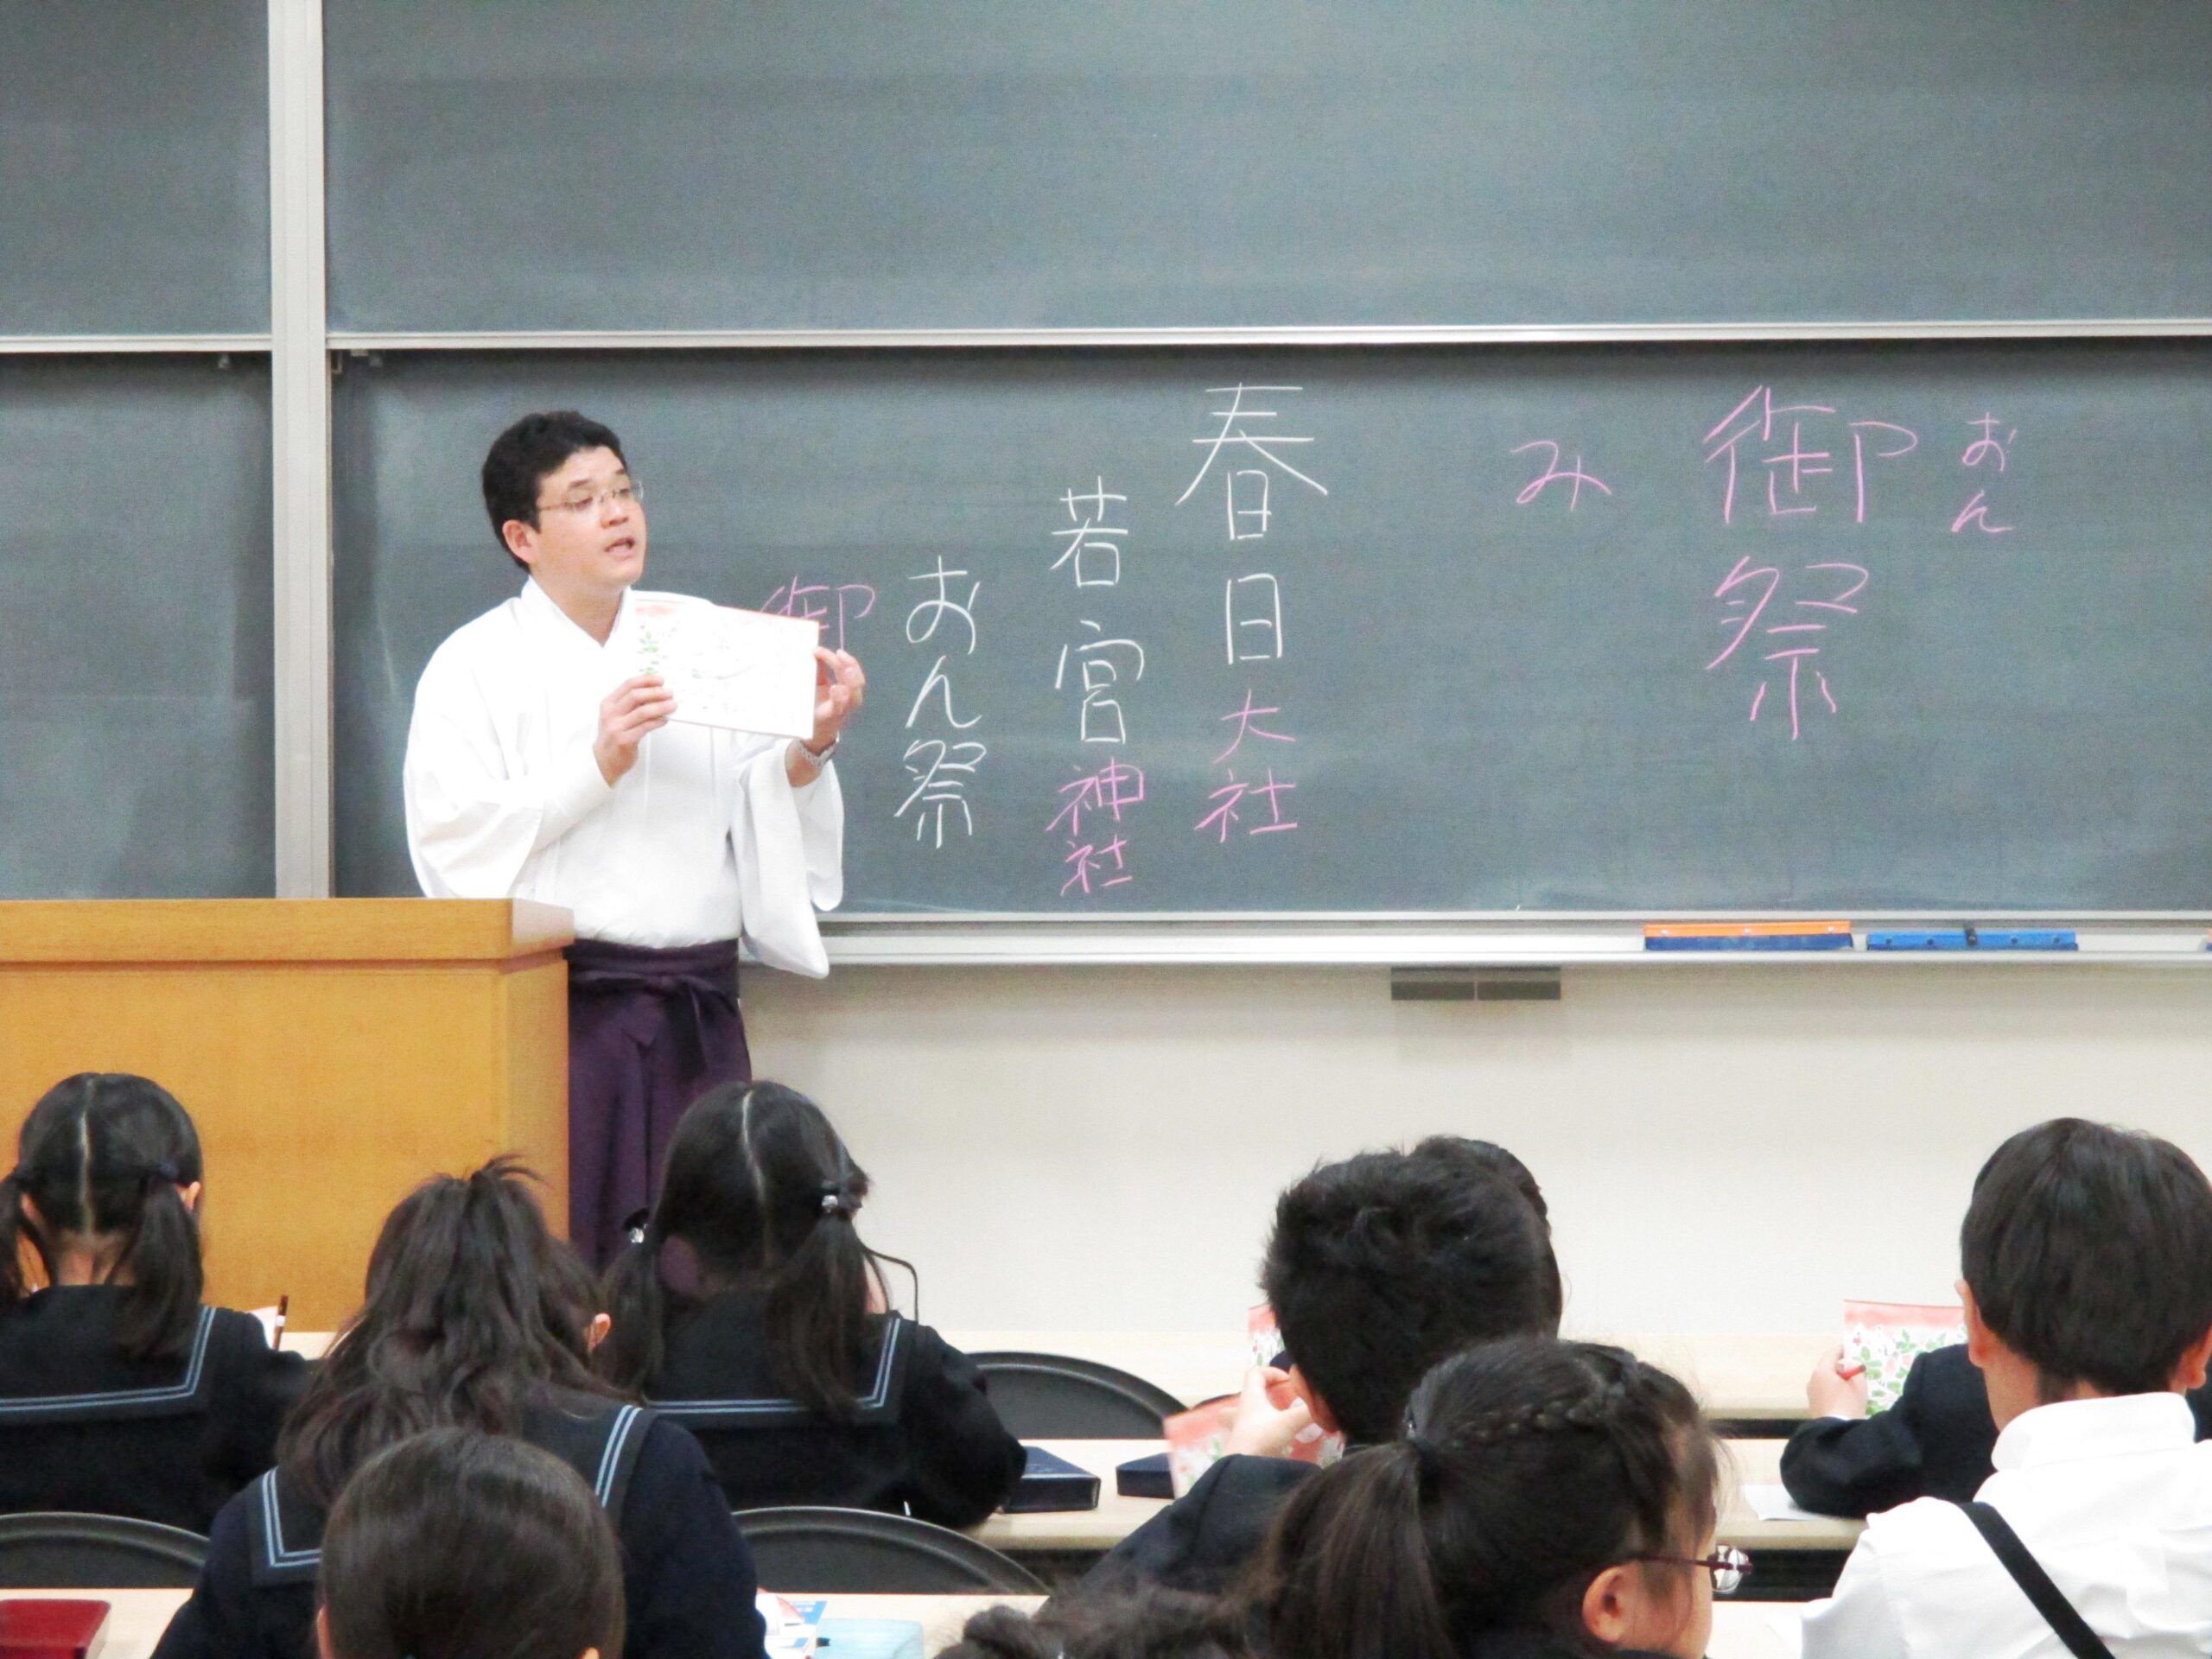 おん
御祭
み
春日大社
若宮神社
おん祭
御